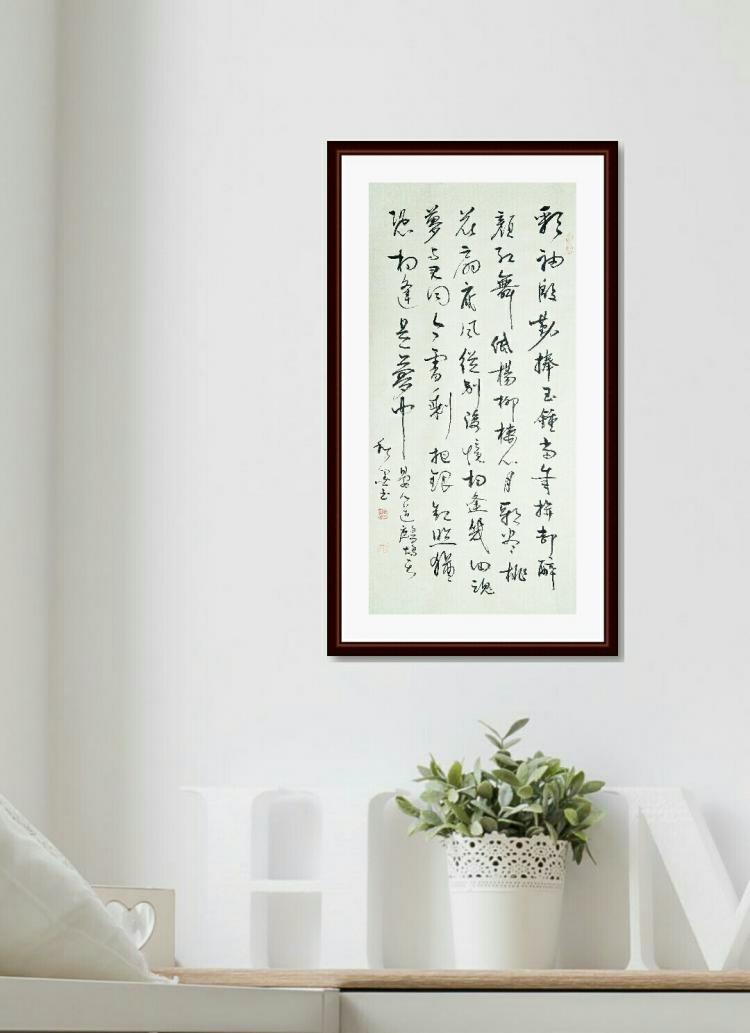 彩袖殷勤捧玉鍾當年拚却醉
顏紅舞低楊柳樓心月歌盡桃
花扇底風從別後憶相逢幾回魂
夢与君同今宵剩把銀釭照猶
恐相逢是夢中
晏几道鷓鴣天
H M